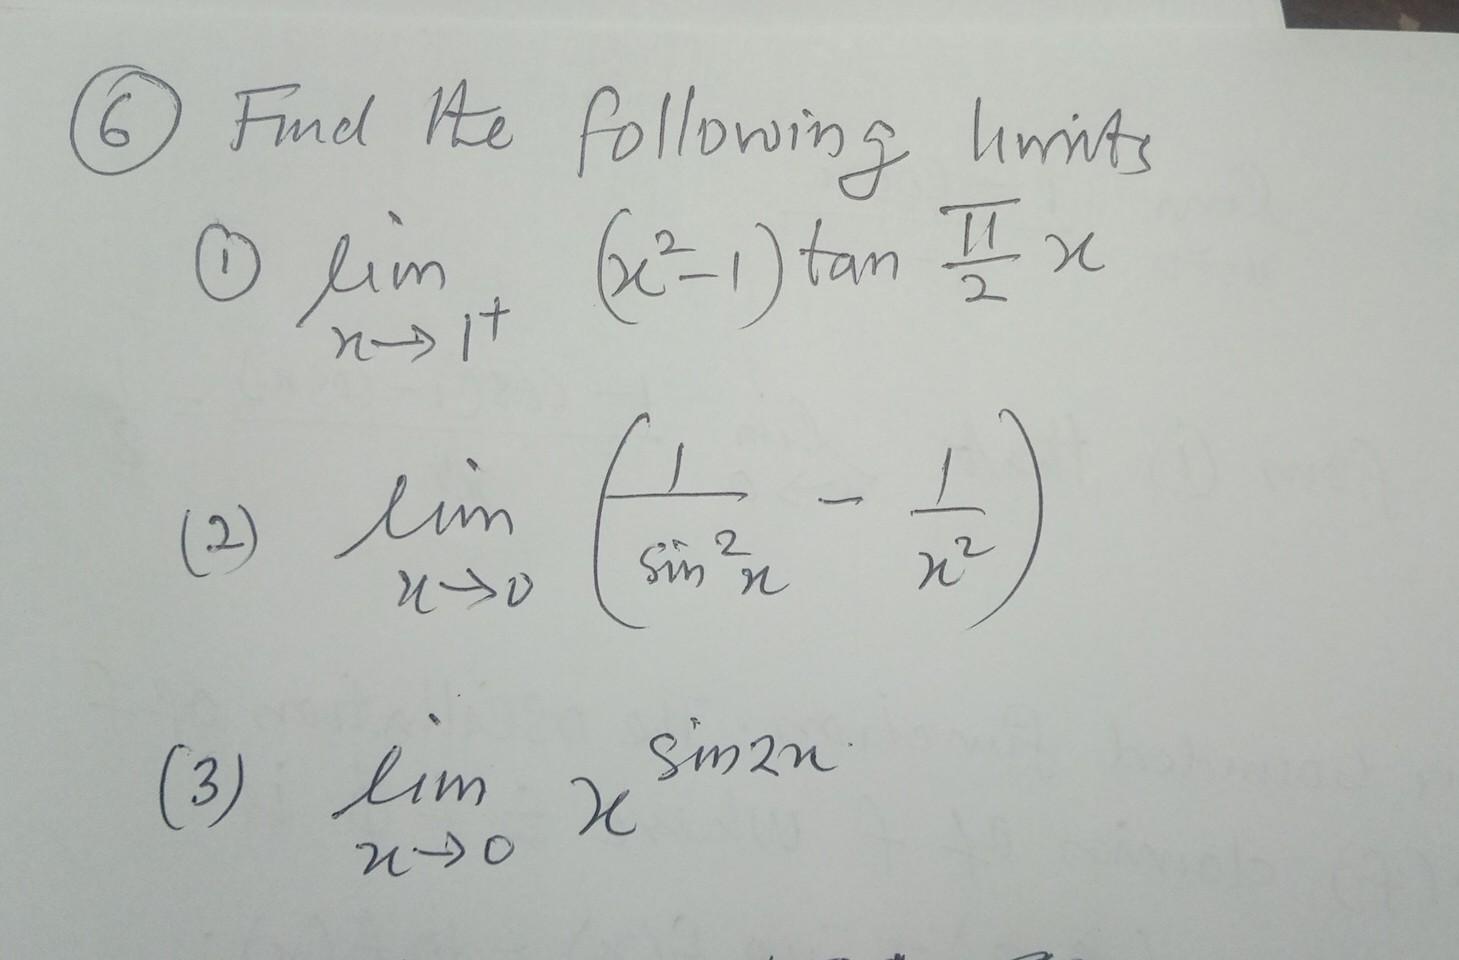 ⑥ Find the following limits
① lim (x²-1) tan π/2 x
x→1⁺
(2) lim (1/sin²x - 1/x²)
x→0
(3) lim x^sin2x
x→0